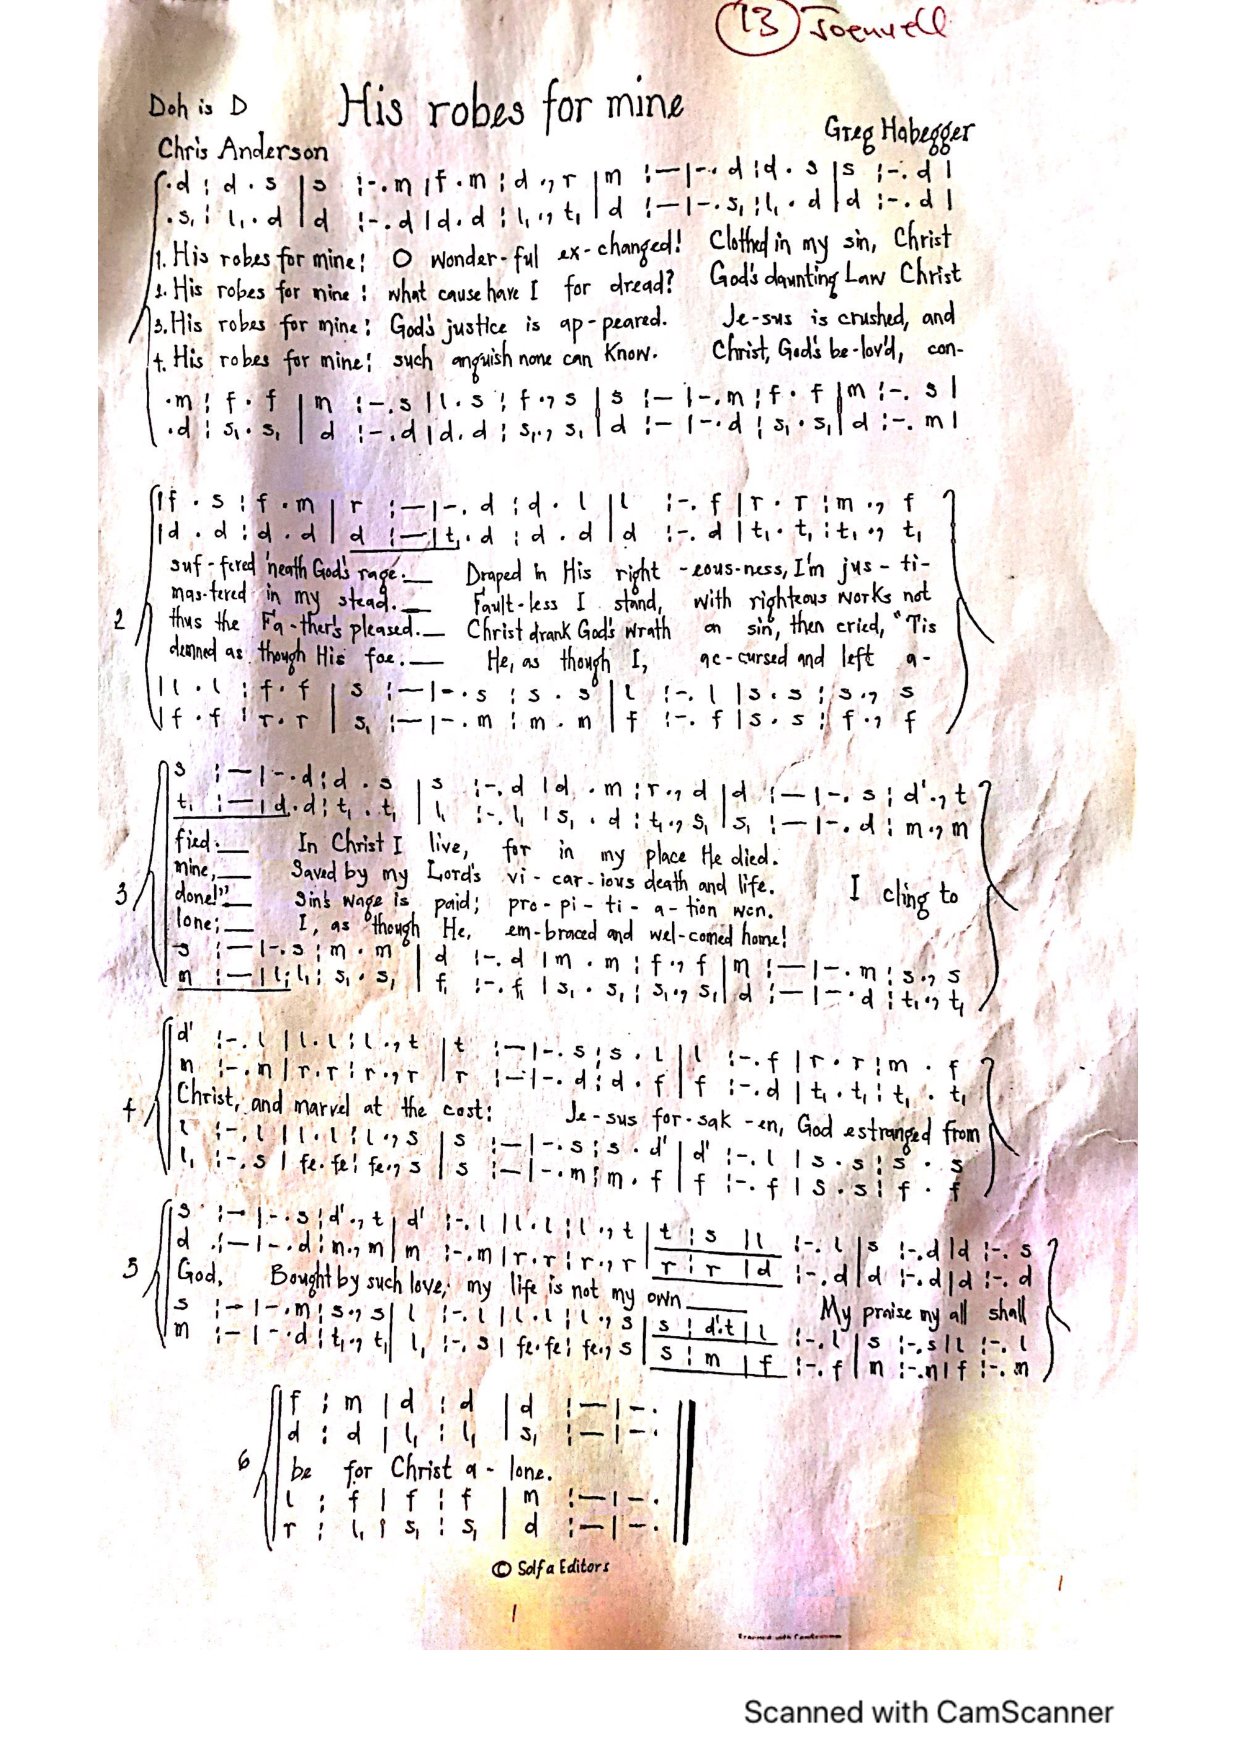 13 Joenvell
Doh is D
His robes for mine
Chris Anderson
Greg Habegger
.d : d . s | s :-. m | f . m : d ., r | m :— | -. d : d . s | s :-. d |
.s, : l, . d | d :-. d | d . d : l, ., t, | d :— | -. s, : l, . d | d :-. d |
1. His robes for mine! O wonder-ful ex-changed! Clothed in my sin, Christ
2. His robes for mine! what cause have I for dread? God's daunting Law Christ
3. His robes for mine! God's justice is ap-peared. Je-sus is crushed, and
4. His robes for mine! such anguish none can know. Christ, God's be-lov'd, con-
.m : f . f | m :-. s | l . s : f ., s | s :— | -. m : f . f | m :-. s |
.d : s, . s, | d :-. d | d . d : s, ., s, | d :— | -. d : s, . s, | d :-. m |
| f . s : f . m | r :— | -. d : d . l | l :-. f | r . r : m ., f
| d . d : d . d | d :— | t, . d : d . d | d :-. d | t, . t, : t, ., t,
suf-fered 'neath God's rage.__ Draped in His right-eous-ness, I'm jus-ti-
mas-tered in my stead.__ Fault-less I stand, with righteous works not
2 thus the Fa-ther's pleased.__ Christ drank God's wrath on sin, then cried, "Tis
demned as though His foe.__ He, as though I, ac-cursed and left a-
| l . l : f . f | s :— | -. s : s . s | l :-. l | s . s : s ., s
| f . f : r . r | s, :— | -. m : m . m | f :-. f | s . s : f ., f
s :— | -. d : d . s | s :-. d | d . m : r ., d | d :— | -. s : d' ., t
t, :— | d . d : t, . t, | l, :-. l, | s, . d : t, ., s, | s, :— | -. d : m ., m
fied.__ In Christ I live, for in my place He died.
mine,__ Saved by my Lord's vi-car-ious death and life.
3 done!"__ Sin's wage is paid; pro-pi-ti-a-tion won. I cling to
lone;__ I, as though He, em-braced and wel-comed home!
s :— | -. s : m . m | d :-. d | m . m : f ., f | m :— | -. m : s ., s
m :— | l, . l, : s, . s, | f, :-. f, | s, . s, : s, ., s, | d :— | -. d : t, ., t,
d' :-. l | l . l : l ., t | t :— | -. s : s . l | l :-. f | r . r : m . f
m :-. m | r . r : r ., r | r :— | -. d : d . f | f :-. d | t, . t, : t, . t,
4 Christ, and marvel at the cost: Je-sus for-sak-en, God estranged from
l :-. l | l . l : l ., s | s :— | -. s : s . d' | d' :-. l | s . s : s . s
l, :-. s | fe . fe : fe ., s | s :— | -. m : m . f | f :-. f | s . s : f . f
s :— | -. s : d' ., t | d' :-. l | l . l : l ., t | t : s | l :-. l | s :-. d | d :-. s
d :— | -. d : m ., m | m :-. m | r . r : r ., r | r : r | d :-. d | d :-. d | d :-. d
5 God, Bought by such love, my life is not my own___ My praise my all shall
s :— | -. m : s ., s | l :-. l | l . l : l ., s | s : d'.t | l :-. l | s :-. s | l :-. l
m :— | -. d : t, ., t, | l, :-. s | fe . fe : fe ., s | s : m | f :-. f | m :-. m | f :-. m
f : m | d : d | d :— | -.
d : d | l, : l, | s, :— | -.
6 be for Christ a-lone.
l : f | f : f | m :— | -.
r : l, | s, : s, | d :— | -.
© Solfa Editors
1
1
Scanned with CamScanner
Scanned with CamScanner